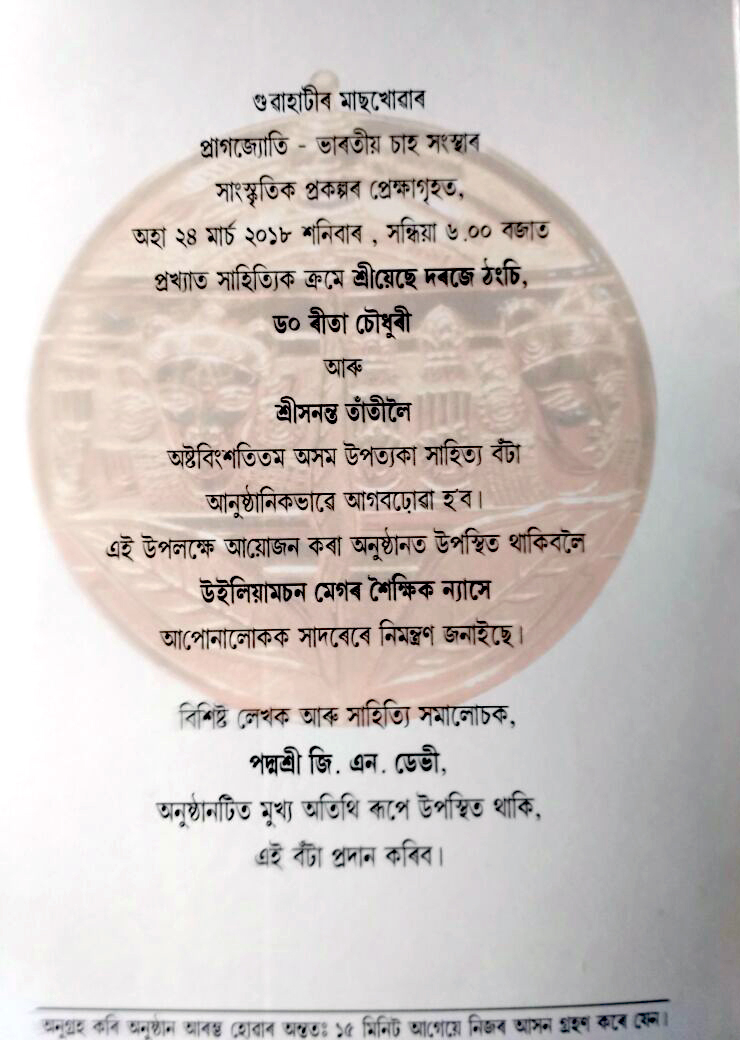 গুৱাহাটীৰ মাছখোৱাৰ
প্ৰাগজ্যোতি - ভাৰতীয় চাহ সংস্থাৰ
সাংস্কৃতিক প্ৰকল্পৰ প্ৰেক্ষাগৃহত,
অহা ২৪ মাৰ্চ ২০১৮ শনিবাৰ , সন্ধিয়া ৬.০০ বজাত
প্ৰখ্যাত সাহিত্যিক ক্ৰমে শ্ৰীয়েছে দৰজে ঠংচি,
ড০ ৰীতা চৌধুৰী
আৰু
শ্ৰীসনন্ত তাঁতীলৈ
অষ্টবিংশতিতম অসম উপত্যকা সাহিত্য বঁটা
আনুষ্ঠানিকভাৱে আগবঢ়োৱা হ'ব।
এই উপলক্ষে আয়োজন কৰা অনুষ্ঠানত উপস্থিত থাকিবলৈ
উইলিয়ামচন মেগৰ শৈক্ষিক ন্যাসে
আপোনালোকক সাদৰেৰে নিমন্ত্ৰণ জনাইছে।
বিশিষ্ট লেখক আৰু সাহিত্যি সমালোচক,
পদ্মশ্ৰী জি. এন. ডেভী,
অনুষ্ঠানটিত মুখ্য অতিথি ৰূপে উপস্থিত থাকি,
এই বঁটা প্ৰদান কৰিব।
অনুগ্ৰহ কৰি অনুষ্ঠান আৰম্ভ হোৱাৰ অন্ততঃ ১৫ মিনিট আগেয়ে নিজৰ আসন গ্ৰহণ কৰে যেন।